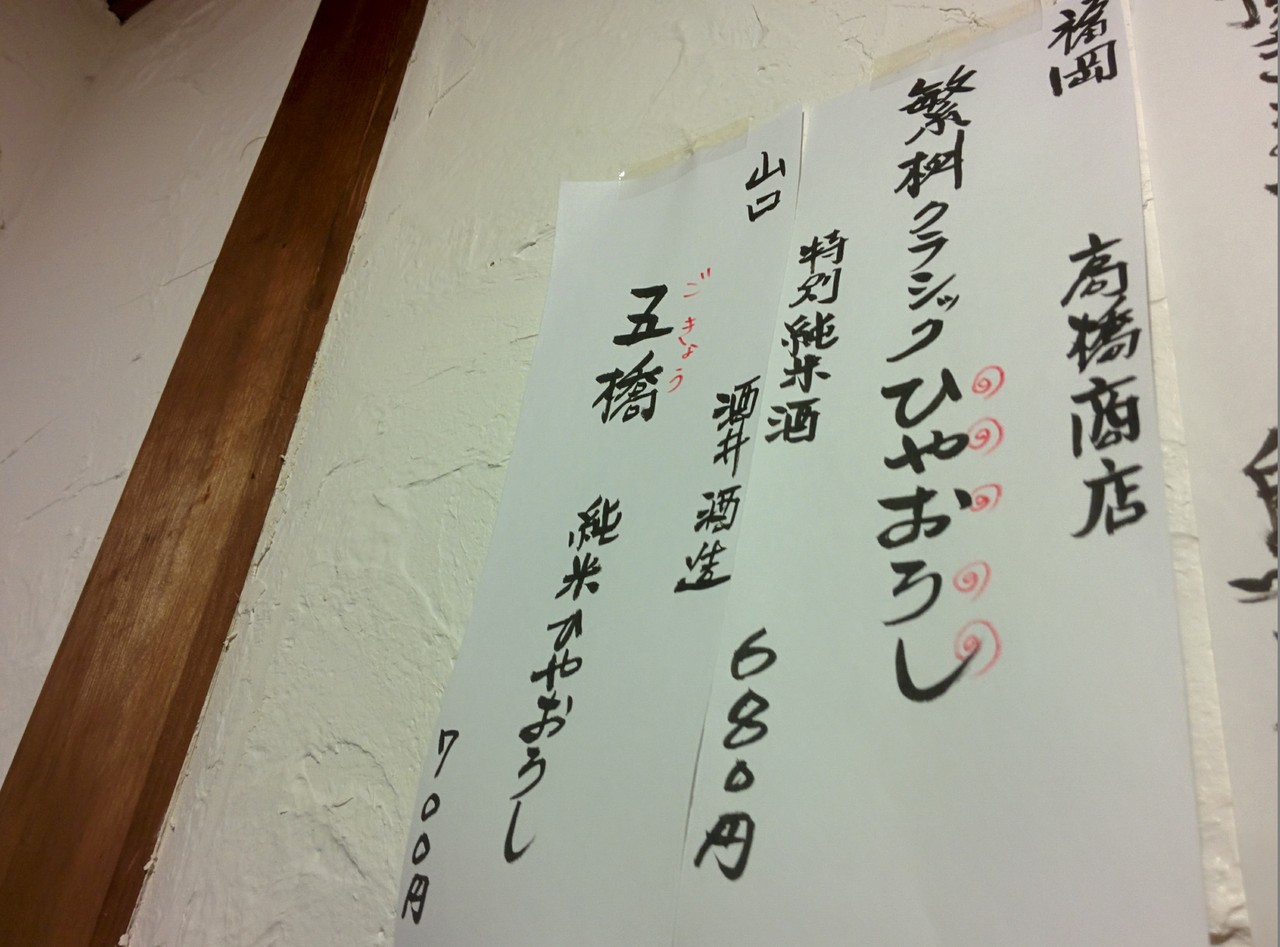 福岡 高橋商店
繁桝クラシックひやおろし
特別純米酒 680円
山口 酒井酒造
五橋
ごきょう
純米ひやおろし
700円